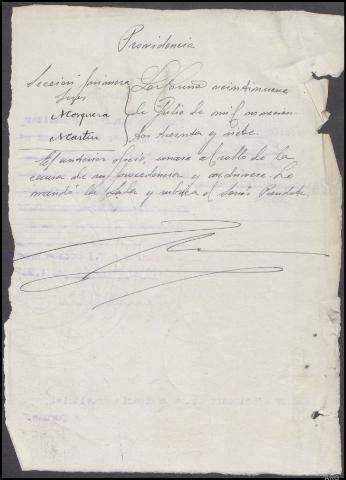 Providencia
Sección primera
Sres
Mosquera
Martin
La Coruña veintinueve
de Julio de mil novecien-
tos treinta y nueve.
El anterior oficio, unase al rollo de la
causa de su procedencia y archivese. Lo
mandó la Sala y rubrica el Señor Presidente